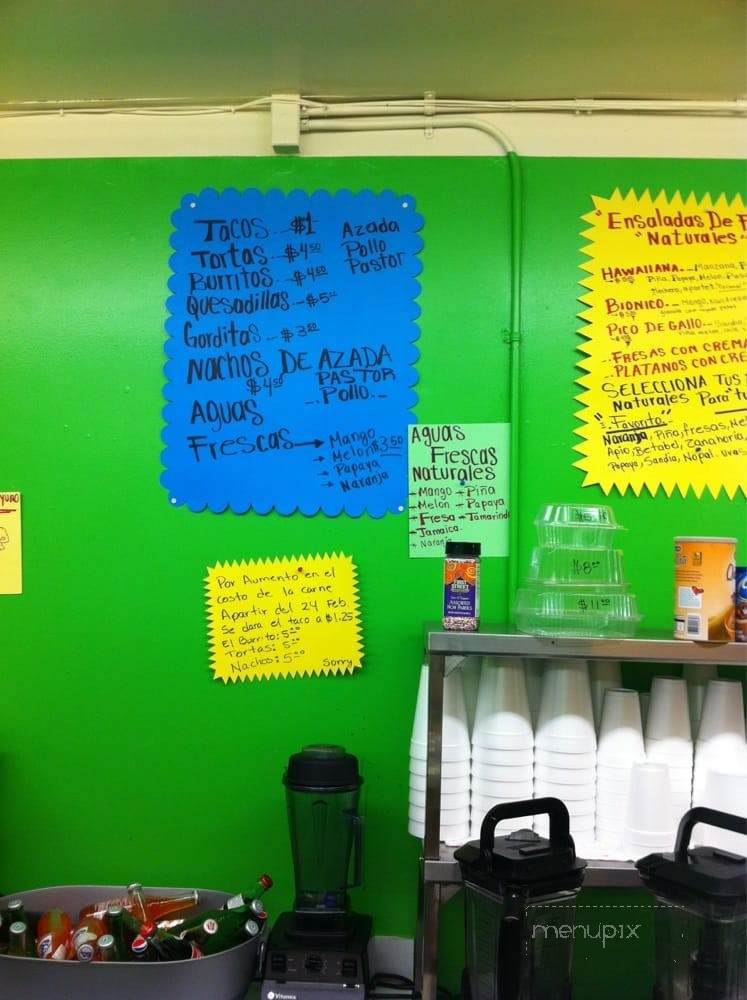 Tacos...$1
Tortas...$4.50
Burritos...$4.50
Quesadillas...$5
Gorditas...$3.50
Azada
Pollo
Pastor
Nachos DE AZADA
$4.50 PASTOR
Pollo
Aguas
Frescas → Mango
→ Melon $3.50
→ Papaya
→ Naranja
Aguas
Frescas
Naturales
→ Mango → Piña
→ Melon → Papaya
→ Fresa → Tamarindo
→ Jamaica
→ Naranja
"Ensaladas De F
"Naturales"
HAWAIIANA.-- Manzana,
Piña, Papaya, Melon,
BIONICO.-- Mango,
PICO DE GALLO.-- Sandia,
FRESAS CON CREMA
PLATANOS CON CRE
SELECCIONA TUS
Naturales Para "tu
"Favorita"
Naranja, Piña, fresas,
Apio, Betabel, Zanahoria,
Papaya, Sandia, Nopal. Uvas
Por Aumento en el
costo de la carne
Apartir del 24 Feb.
Se dara el taco a $1.25
El Burrito: 5.00
Tortas: 5.00
Nachos: 5.00 Sorry
$11.50
Vitamix
menupix